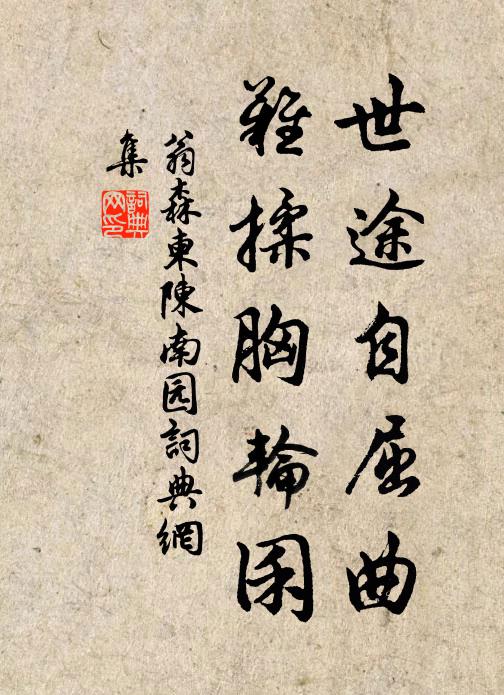 世途自屈曲
難揉胸輪囷
翁森東陳南园詞典網
集
詞典
网印